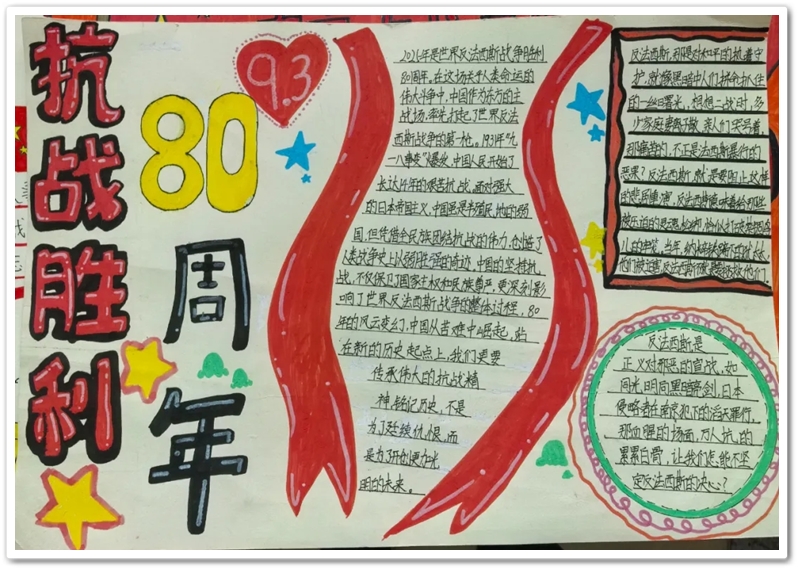 抗战胜利
80
周年
9.3
2025年是世界反法西斯战争胜利
80周年,在这场关乎人类命运的
伟大斗争中,中国作为东方的主
战场,率先打起了世界反法
西斯战争的第一枪。1931年"九
一八事变"爆发,中国人民开始了
长达14年的艰苦抗战,面对强大
的日本帝国主义,中国虽是半殖民地的弱
国,但凭借全民族团结抗战的伟力,创造了
人类战争史上以弱胜强的奇迹,中国的坚持抗
战,不仅保卫了国家主权和民族尊严,更深刻影
响了世界反法西斯战争的整体过程,80
年的风云变幻,中国从苦难中崛起,站
在新的历史起点上,我们更要
传承伟大的抗战精
神,铭记历史,不是
为了延续仇恨,而
是为了开创更加光
明的未来。
反法西斯,那是对和平的执着守
护,就像黑暗中人们拼命抓住
的一丝曙光,想想二战时,多
少家庭支离破散,亲人们哭号着
那痛苦的,不正是法西斯暴行的
恶果?反法西斯,就是要阻止这样
的悲剧重演,反法西斯意味着给那些
他们被迫
反法西斯是
正义对邪恶的宣战,如
同光明同黑暗亮剑,日本
侵略者在南京犯下的滔天罪行,
那血腥的场面,万人坑,的
累累白骨,让我们怎能不坚
定反法西斯的决心?